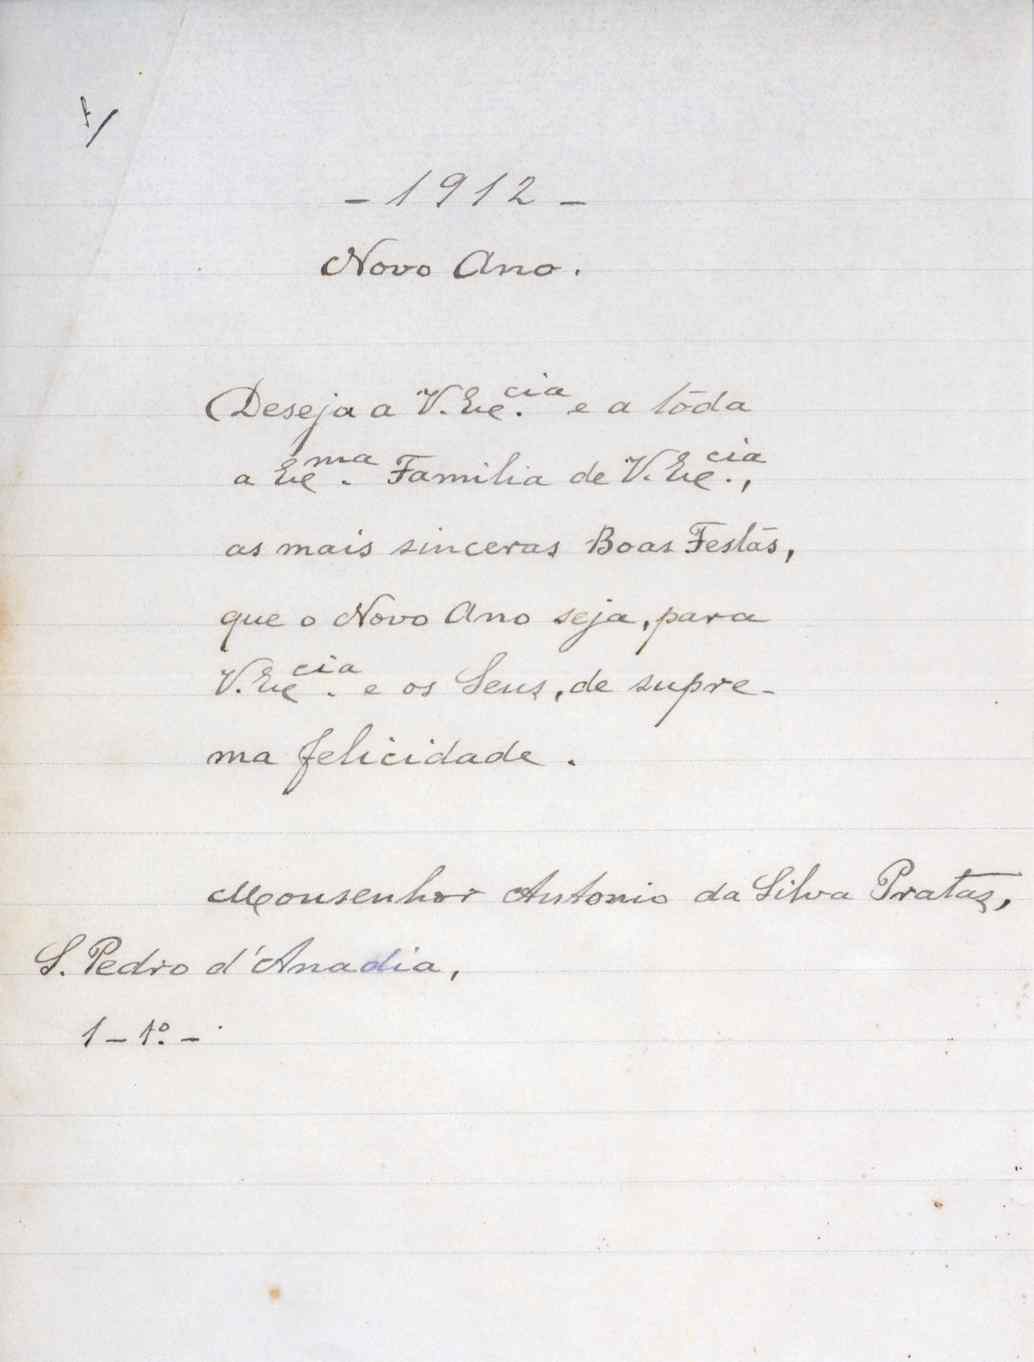 - 1912 -
Novo Ano.
Deseja a V. Exc.cia e a tôda
a Exc.ma Familia de V. Exc.cia,
as mais sinceras Boas Festas,
que o Novo Ano seja, para
V. Exc.cia e os Seus, de supre-
ma felicidade.
Monsenhor Antonio da Silva Pratas,
S. Pedro d'Anadia,
1-1º.-